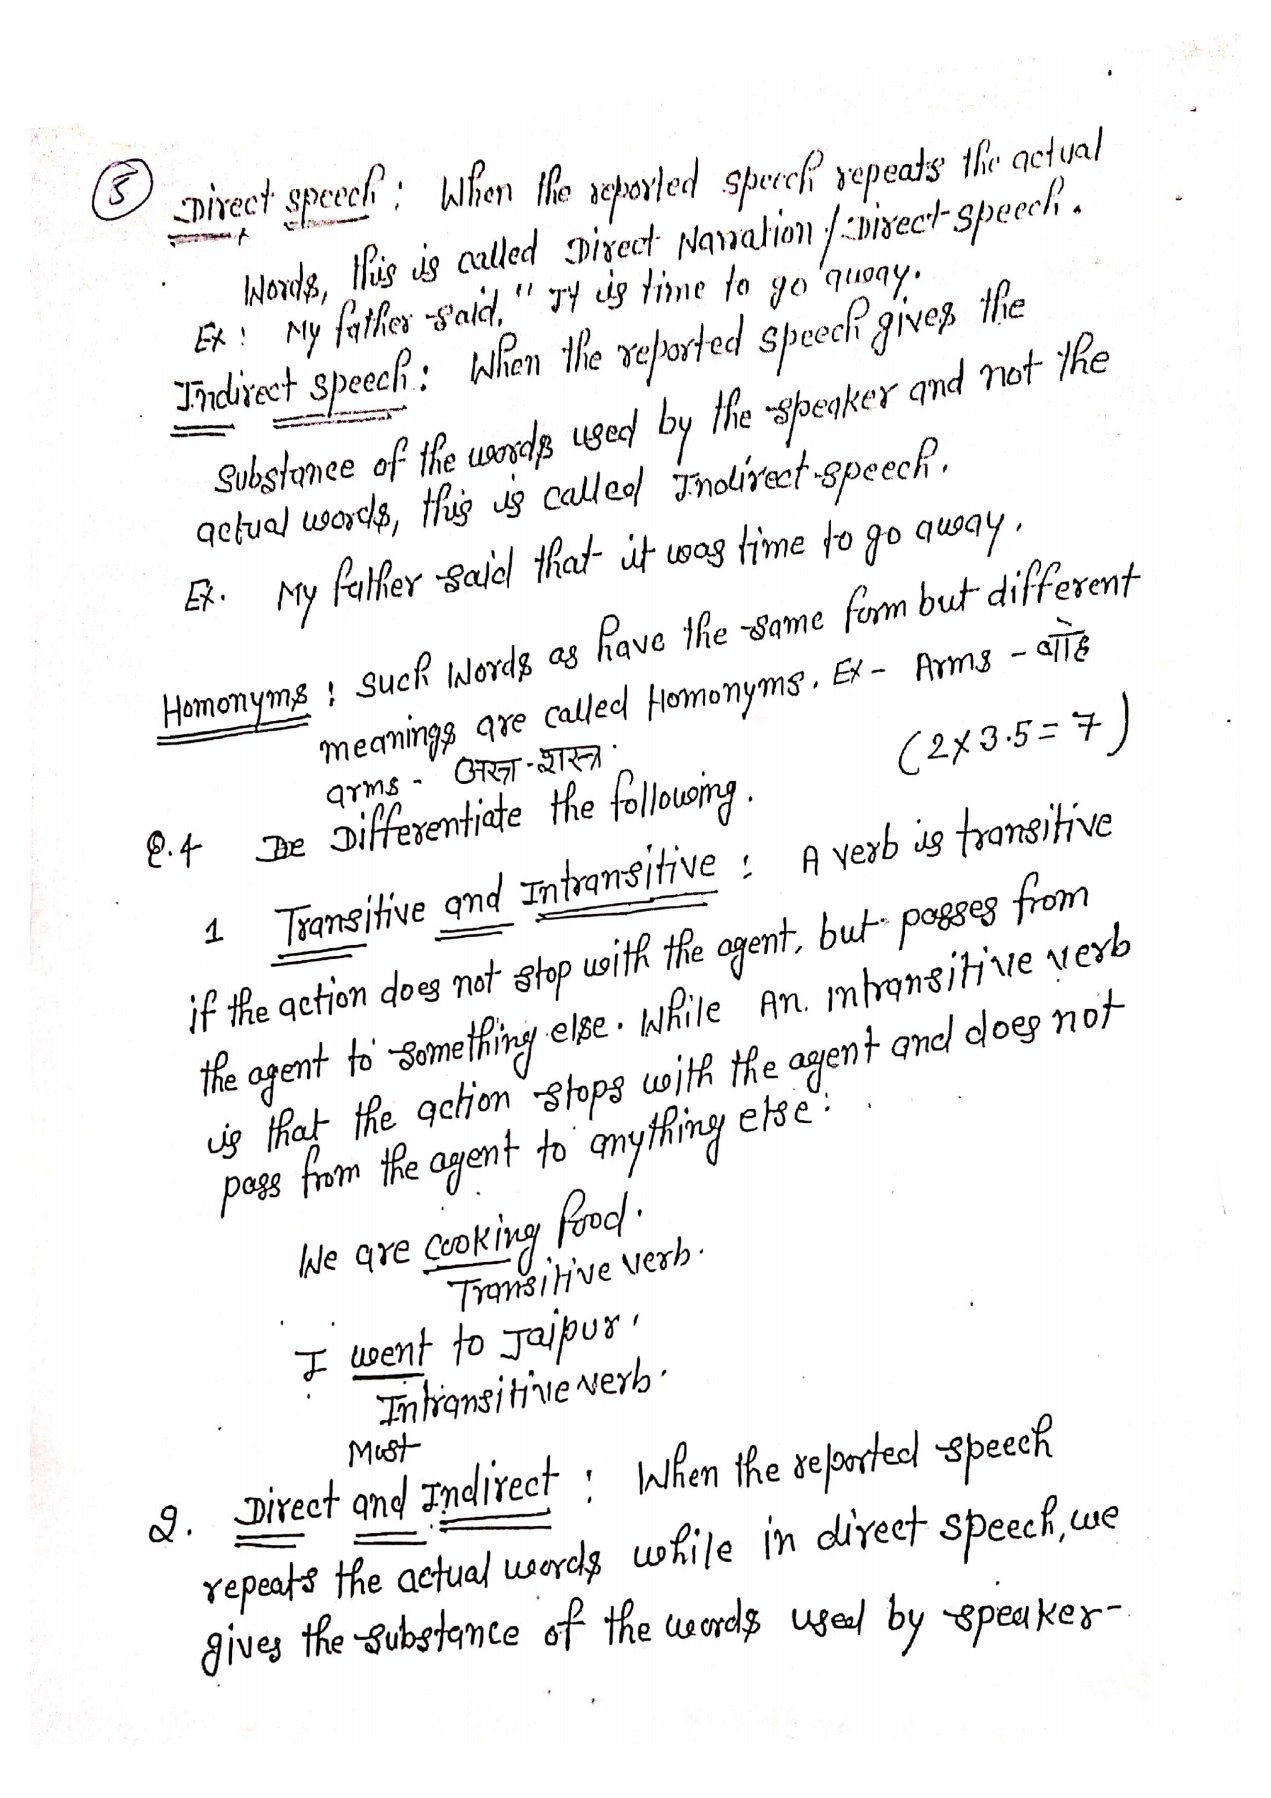 5
Direct speech : When the reported speech repeats the actual
Words, this is called Direct Narration / Direct speech.
Ex : My father said, " It is time to go away.
Indirect speech : When the reported speech gives the
Substance of the words used by the speaker and not the
actual words, this is called Indirect speech.
Ex. My father said that it was time to go away.
Homonyms : Such Words as have the same form but different
meanings are called Homonyms. Ex - Arms - बाँहे
arms - अस्त्र-शस्त्र.
(2x3.5=7)
Q.4 De Differentiate the following.
1 Transitive and Intransitive : A verb is transitive
if the action does not stop with the agent, but passes from
the agent to something else. While An. intransitive verb
is that the action stops with the agent and does not
pass from the agent to anything else :
We are cooking food.
Transitive verb.
I went to Jaipur.
Intransitive verb.
Must
2. Direct and Indirect : When the reported speech
repeats the actual words while in direct speech, we
gives the substance of the words used by speaker-